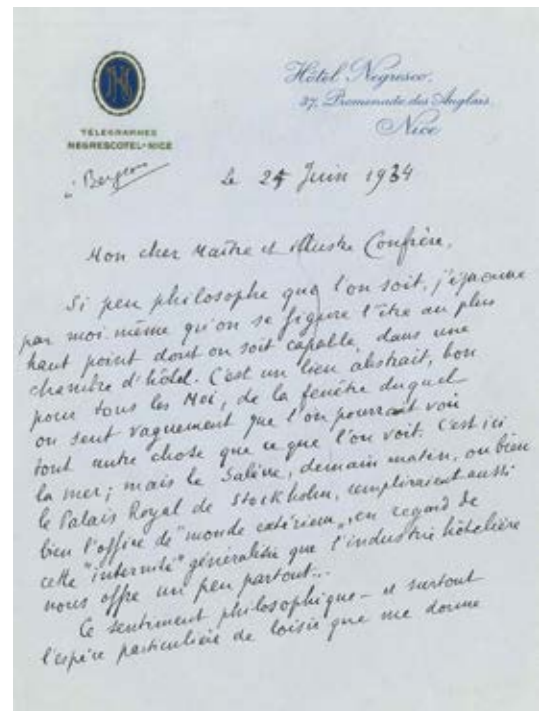 TELEGRAMMES
NEGRESCOTEL-NICE
Hôtel Negresco.
37, Promenade des Anglais.
Nice
à Bergson
le 24 Juin 1934
Mon cher Maître et illustre Confrère,
Si peu philosophe que l'on soit, j'éprouve
par moi-même qu'on se figure l'être au plus
haut point dont on soit capable, dans une
chambre d'hôtel. C'est un lieu abstrait, bon
pour tous les Moi, de la fenêtre duquel
on sent vaguement que l'on pourrait voir
tout autre chose que ce que l'on voit. C'est ici
la mer; mais le Salève, demain matin, ou bien
le Palais Royal de Stockholm, rempliraient aussi
bien l'office de "monde extérieur", en regard de
cette "internité" généralisée que l'industrie hôtelière
nous offre un peu partout...
Ce sentiment philosophique – et surtout
l'espèce particulière de loisir que me donne